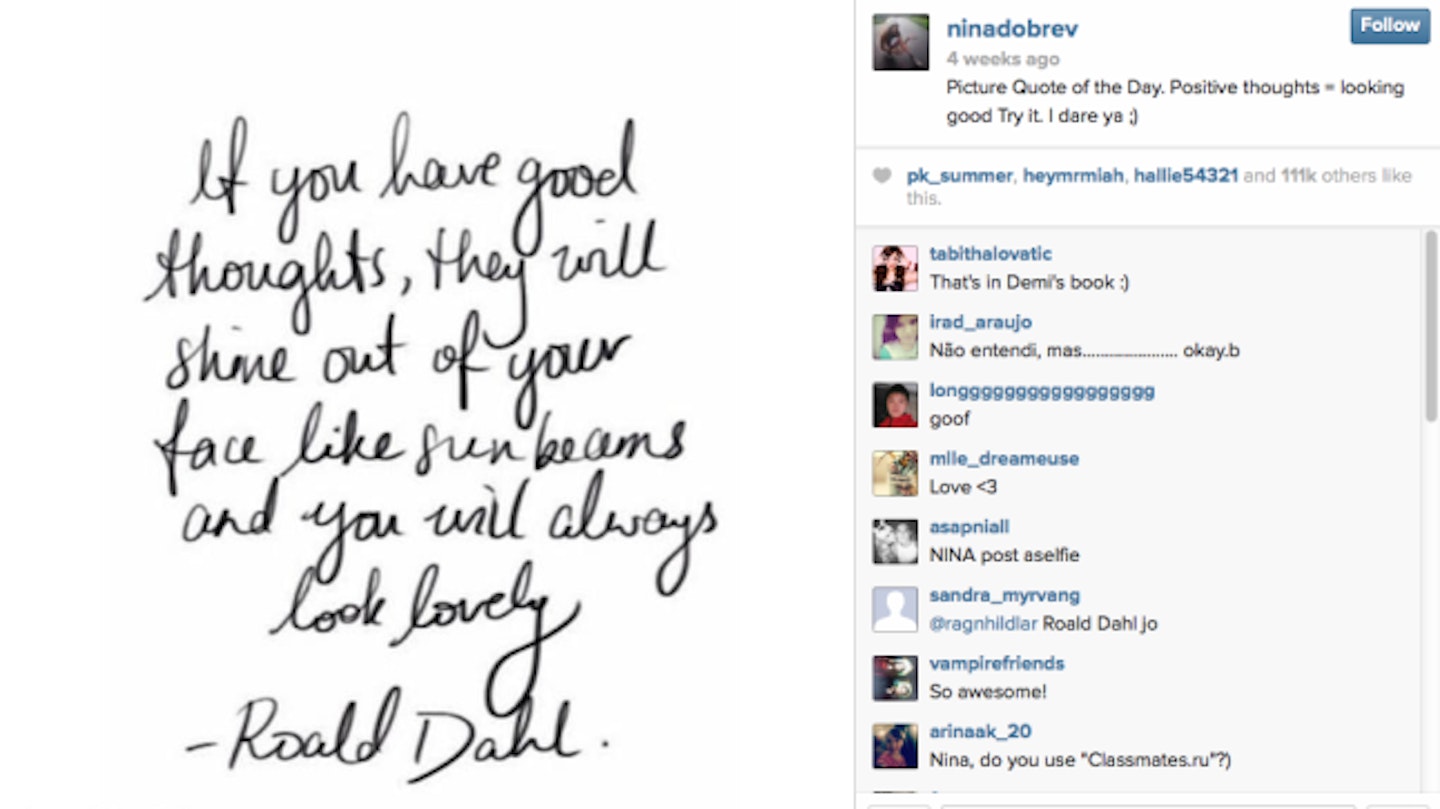 If you have good
thoughts, they will
shine out of your
face like sunbeams
and you will always
look lovely
- Roald Dahl.
ninadobrev
Follow
4 weeks ago
Picture Quote of the Day. Positive thoughts = looking
good Try it. I dare ya ;)
pk_summer, heymrmiah, hallie54321 and 111k others like
this.
tabithalovatic
That's in Demi's book :)
irad_araujo
Não entendi, mas...................... okay.b
longggggggggggggggggg
goof
mlle_dreameuse
Love <3
asapniall
NINA post aselfie
sandra_myrvang
@ragnhildlar Roald Dahl jo
vampirefriends
So awesome!
arinaak_20
Nina, do you use "Classmates.ru"?)